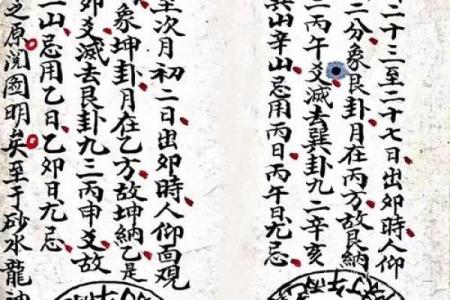 二十三至二十七日出卯時人仰
二分象艮卦月在丙方故艮納
二丙午爻滅去巽卦九二辛亥
巽山辛山忌用丙日丙午日尤忌
至次月初二日出卯時人仰面觀
象坤卦月在乙方故坤納乙是
卯爻滅去艮卦九三丙申爻故
一山忌用乙日乙卯日尤忌
之原閱圖明矣至于砂水龍神